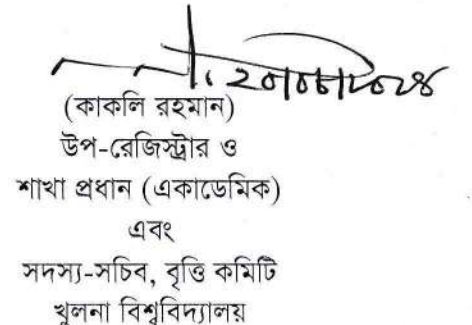 (কাকলি রহমান)
উপ-রেজিস্ট্রার ও
শাখা প্রধান (একাডেমিক)
এবং
সদস্য-সচিব, বৃত্তি কমিটি
খুলনা বিশ্ববিদ্যালয়